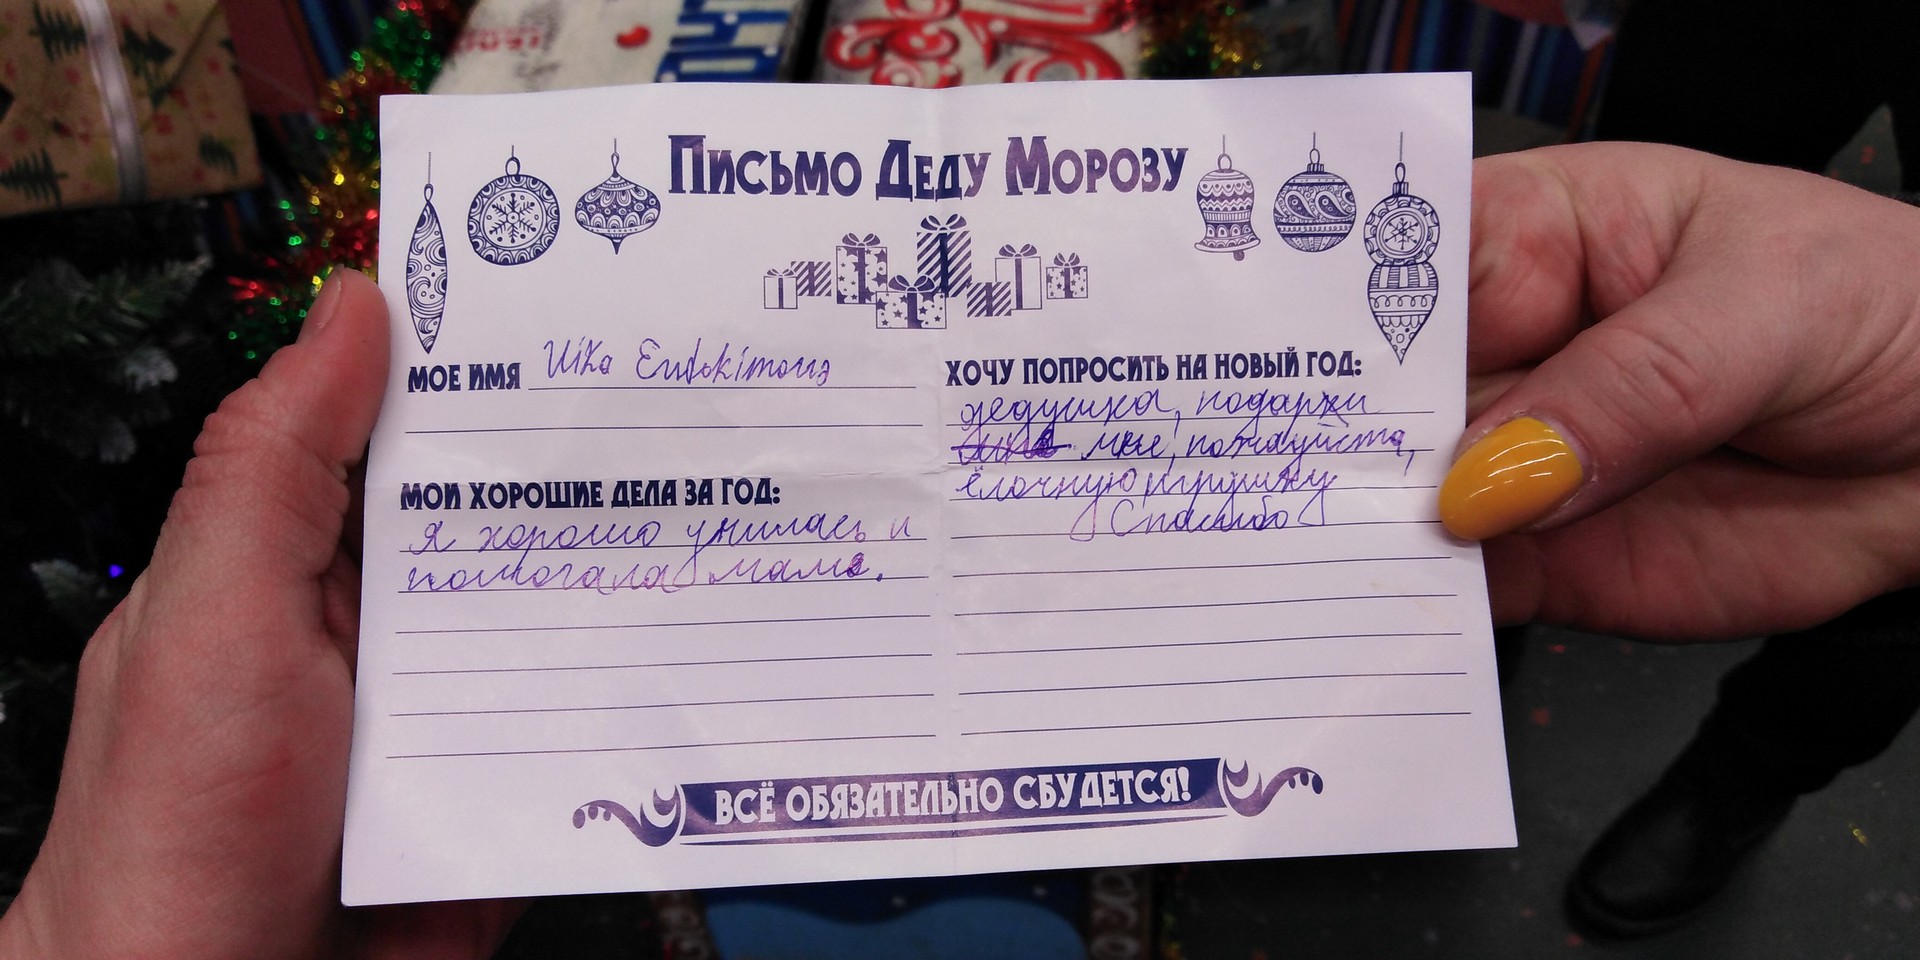 Письмо Деду Морозу
МОЕ ИМЯ Vika Evdokimova
МОИ ХОРОШИЕ ДЕЛА ЗА ГОД:
Я хорошо училась и
помогала маме.
ХОЧУ ПОПРОСИТЬ НА НОВЫЙ ГОД:
дедушка, подари
мне, пожалуйста,
ёлочную игрушку
Спасибо
ВСЁ ОБЯЗАТЕЛЬНО СБУДЕТСЯ!